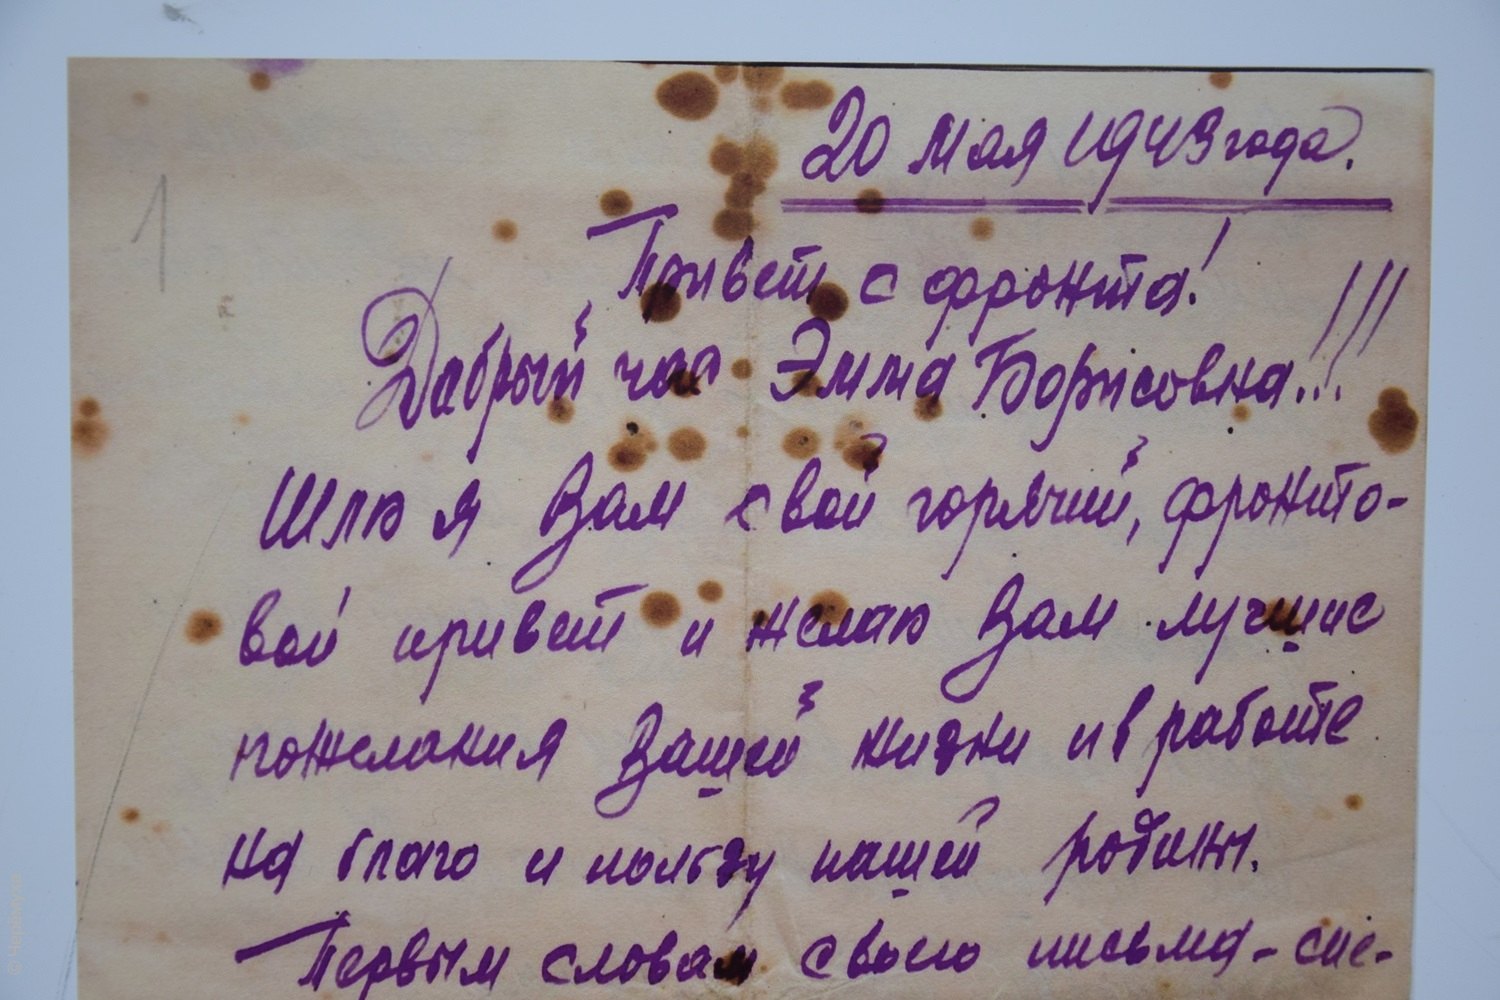 20 мая 1943 года.
1
Привет с фронта!
Добрый час Эмма Борисовна!!!
Шлю я Вам свой горячий, фронто-
вой привет и желаю Вам лучшие
пожелания Вашей жизни и в работе
на благо и пользу нашей родины.
Первым словам своего письма - спе-